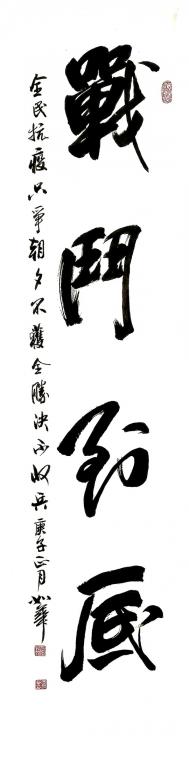 戰鬥到底
全民抗疫只爭朝夕不獲全勝決不收兵庚子正月如華